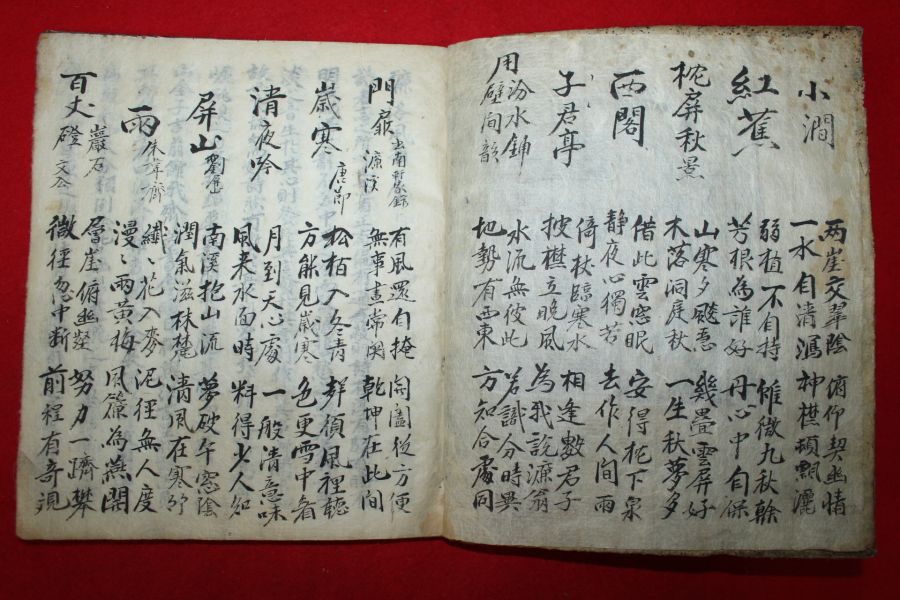 小澗
两崖交翠陰 俯仰契幽情
一水自清瀉 神樵頓飄灑
紅蕉
弱植不自持 雖微九秋榦
芳根為誰好 丹心中自保
枕屏秋景
山寒夕飈急 幾疊雲屏好
木落洞庭秋 一生秋夢多
西閣
借此雲窓眠 安得枕下泉
靜夜心獨苦 去作人間雨
子君亭
倚杖臨寒水 相逢數君子
披襟立晚風 為我說濂翁
用汾水鋪
壁間韻
水流無彼此 若識分時異
地勢有西東 方知合處同
門扉
濂溪
有風還自掩 開闔従方便
無事晝常関 乾坤在此間
歲寒 康節
松栢入冬青 風裡聽
方能見歲寒 色更雪中看
清夜吟
月到天心處 一般清意味
風来水面時 料得少人知
屏山
南溪抱山流 夢破午窓陰
潤氣滋林麓 清風在寒竹
雨 朱韋齋
纖〻花入麥 泥徑無人度
漫〻雨黄梅 風簾為燕開
百丈磴
巖石 文公
層崖俯幽壑 努力一躋攀
微徑忽中断 前程有奇観